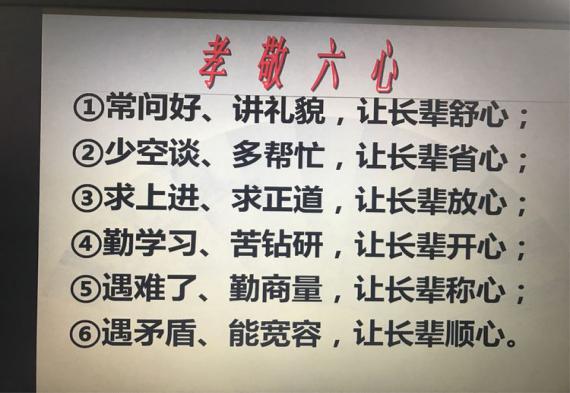 孝敬六心
①常问好、讲礼貌，让长辈舒心；
②少空谈、多帮忙，让长辈省心；
③求上进、求正道，让长辈放心；
④勤学习、苦钻研，让长辈开心；
⑤遇难了、勤商量，让长辈称心；
⑥遇矛盾、能宽容，让长辈顺心。